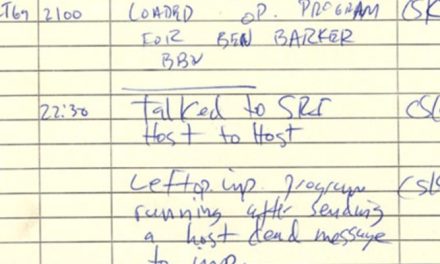 CT69 2100 LOADED OP. PROGRAM (SK
FOR BEN BARKER
BBN
22:30 Talked to SRI (CSK
Host to Host
Left op. imp. program (CSK
running after sending
a host dead message
to imp.